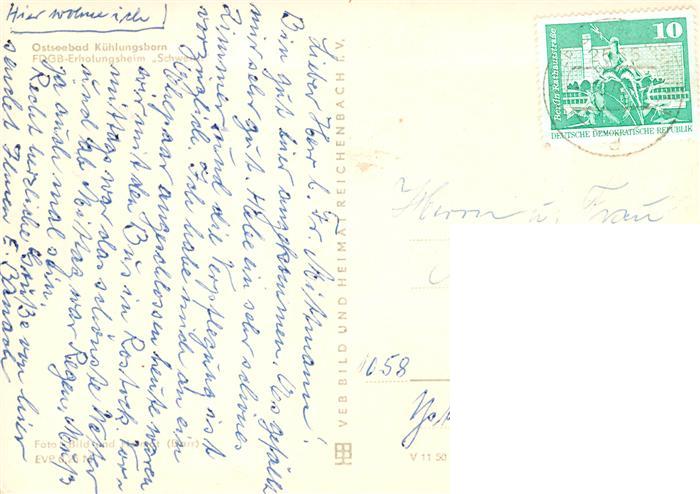 Hier wohne ich
Ostseebad Kühlungsborn
FDGB-Erholungsheim „Schwe
Lieber Herr u. Fr.
Bin gut hier angekommen. Es gefällt
mir sehr gut. Habe ein sehr schönes
Zimmer und die Verpflegung ist
vorzüglich. Ich habe mich an ein
Ehepaar angeschlossen heute waren
wir mit den Bus in Rostock. Vor-
mittag war das schönste Wetter
und ab Mittag war Regen, Muß
ja auch mal sein.
Recht herzliche Grüße von hier
sendet Ihnen E.
Foto: Bild und Heimat
EVP
VEB BILD UND HEIMAT REICHENBACH i. V.
V 11 50
10
Berlin, Rathausstraße
DEUTSCHE DEMOKRATISCHE REPUBLIK
Herrn u. Frau
1058